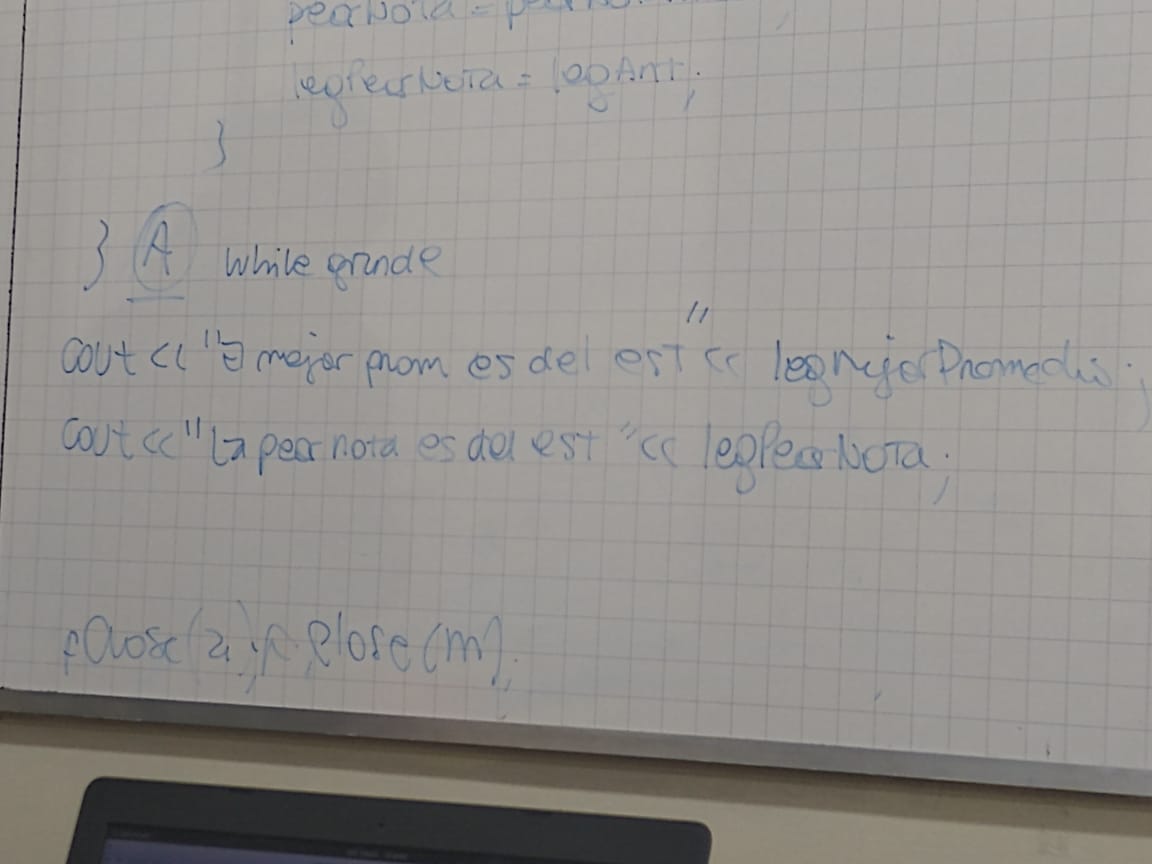 peorNota =
legPeorNota = legAnt;
}
} A while grande
cout << "El mejor prom es del est" << legMejorPromedio;
cout << "La peor nota es del est " << legPeorNota;
fclose(a); fclose(m);